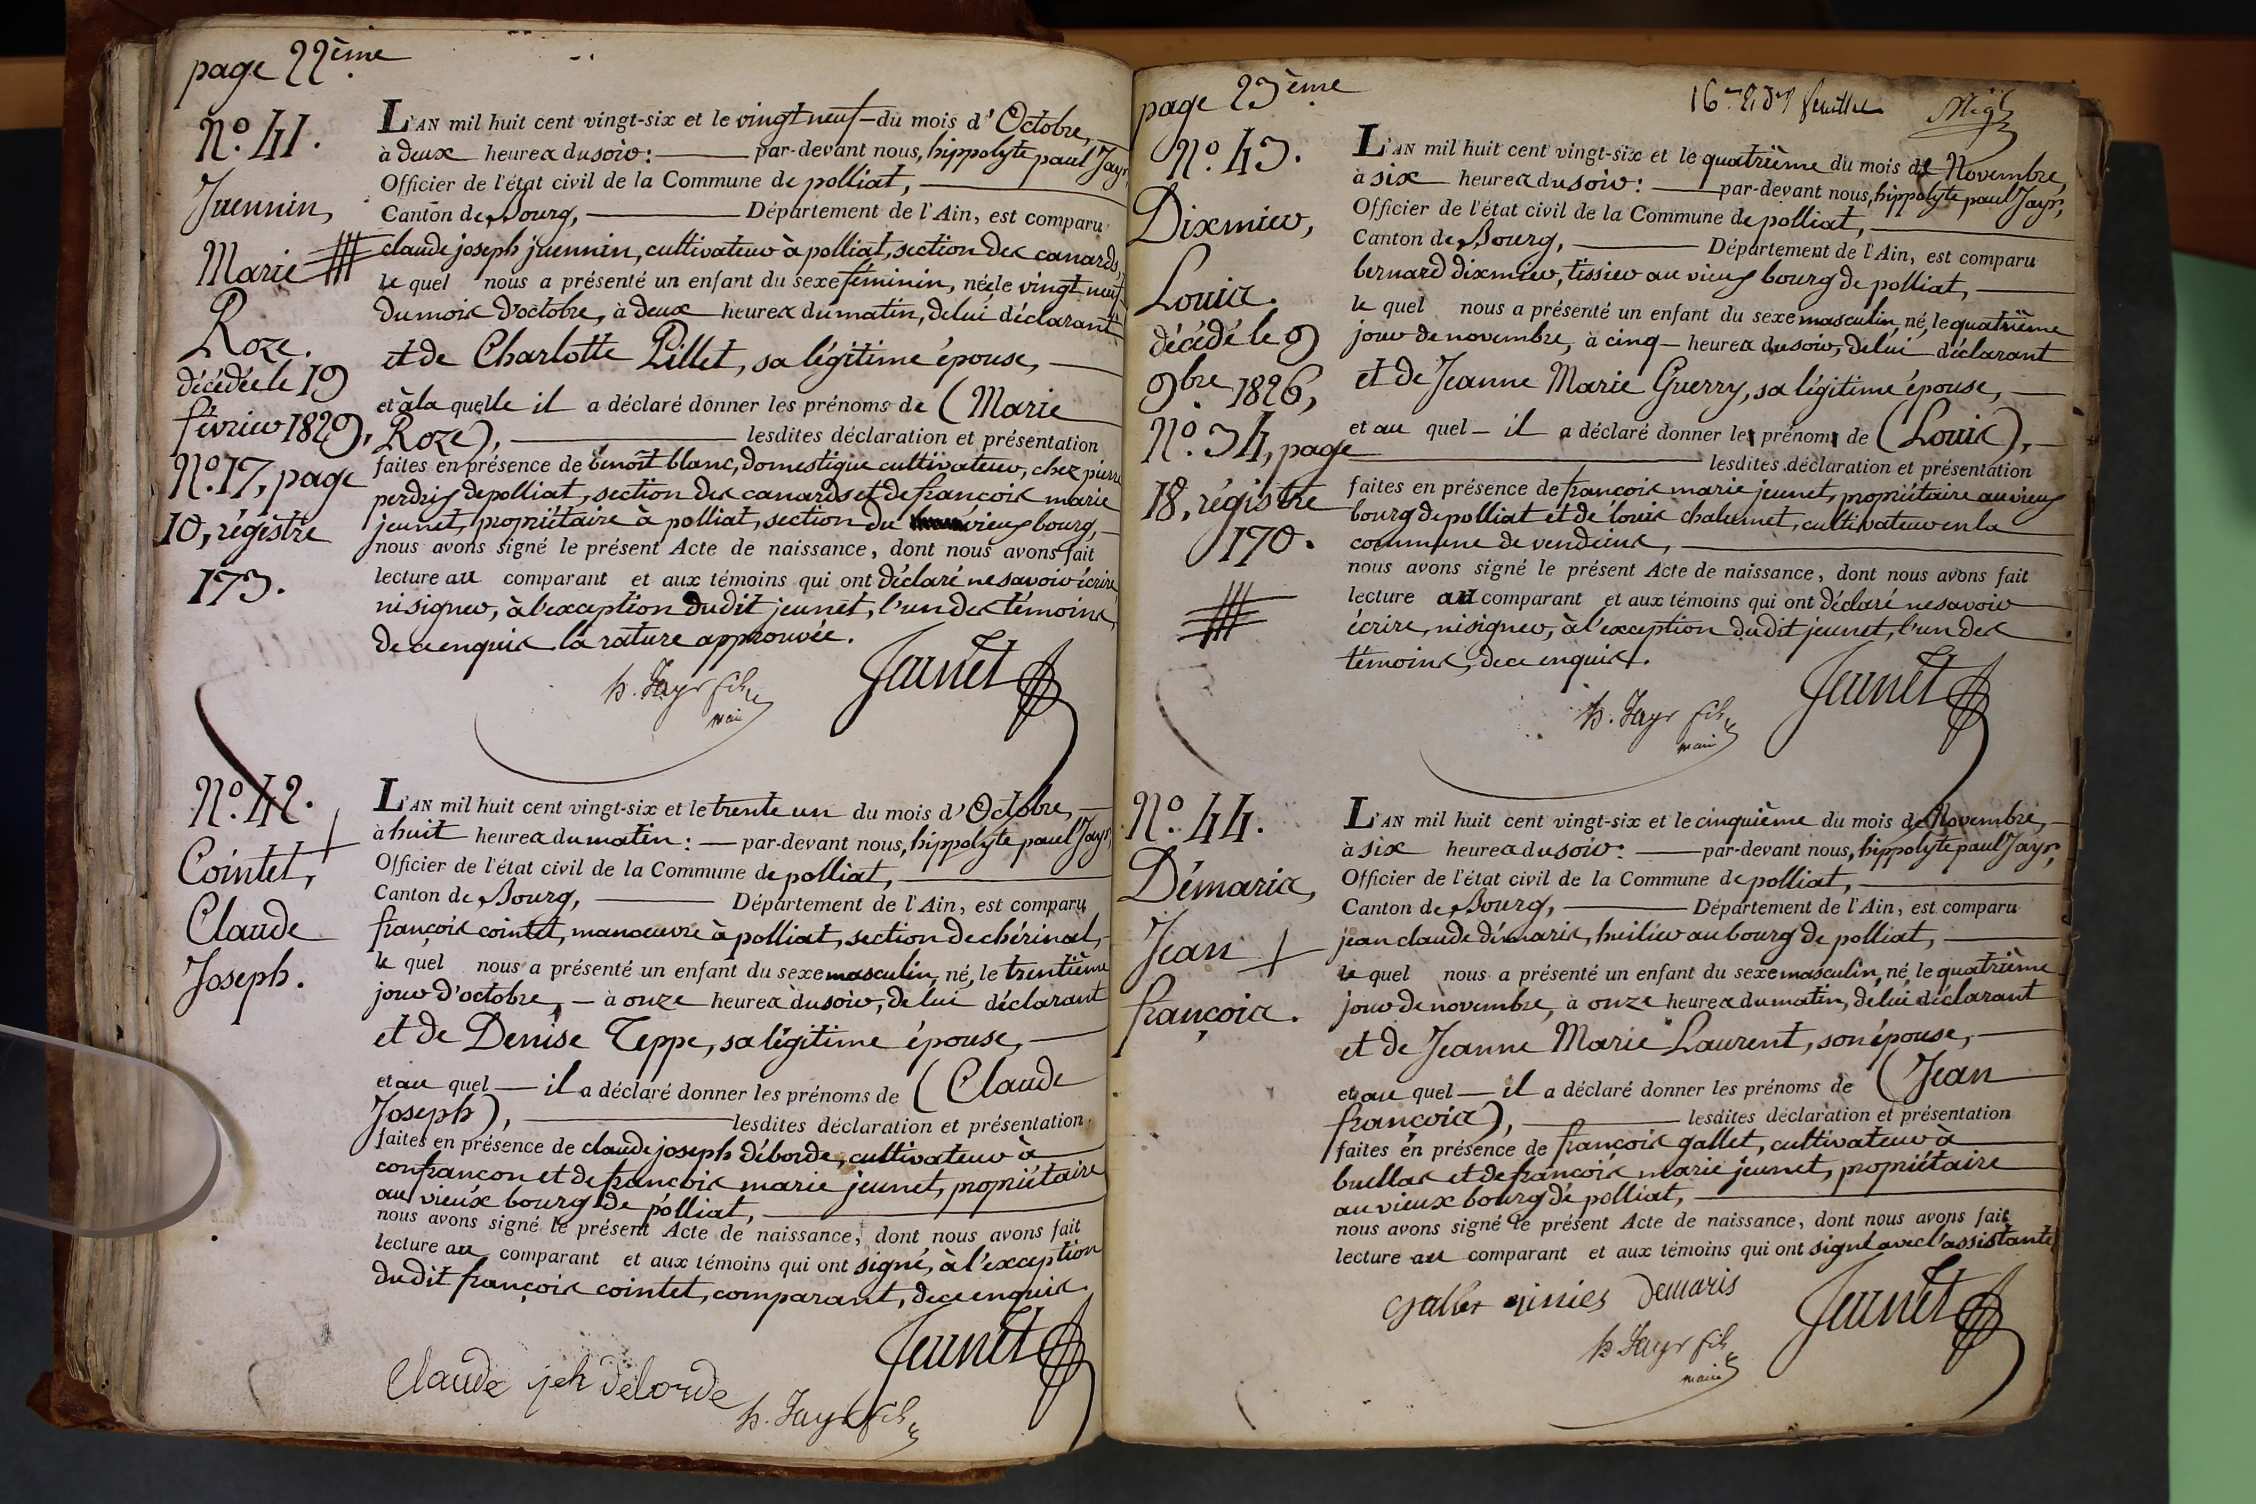 page 22ème
N.o 41.
Juennin,
Marie
Roze.
décédée le 19
février 1829,
N.o 17, page
10, régistre
173.
L'AN mil huit cent vingt-six et le vingt neuf du mois d'Octobre,
à deux heures du soir: par-devant nous, hippolyte paul Jayr,
Officier de l'état civil de la Commune de polliat,
Canton de Bourg, Département de l'Ain, est comparu
claude joseph juennin, cultivateur à polliat, section des canards,
le quel nous a présenté un enfant du sexe féminin, née le vingt neuf
du mois d'octobre, à deux heures du matin, de lui déclarant
et de Charlotte Pillet, sa légitime épouse,
et à la quelle il a déclaré donner les prénoms de (Marie
Roze), lesdites déclaration et présentation
faites en présence de benoît blanc, domestique cultivateur, chez pierre
perdrix de polliat, section des canards et de françois marie
jeunet, propriétaire à polliat, section du vieux bourg,
nous avons signé le présent Acte de naissance, dont nous avons fait
lecture au comparant et aux témoins qui ont déclaré ne savoir écrire
ni signer, à l'exception dudit jeunet, l'un des témoins,
de ce enquis la rature approuvée.
h. Jayr fils
maire
Jeunet
N.o 42.
Cointet,
Claude
Joseph.
L'AN mil huit cent vingt-six et le trente un du mois d'Octobre,
à huit heures du matin: par-devant nous, hippolyte paul Jayr,
Officier de l'état civil de la Commune de polliat,
Canton de Bourg, Département de l'Ain, est comparu
françois cointet, manoeuvre à polliat, section de chérinal,
le quel nous a présenté un enfant du sexe masculin, né, le trentième
jour d'octobre, à onze heures du soir, de lui déclarant
et de Denise Teppe, sa légitime épouse,
et au quel il a déclaré donner les prénoms de (Claude
Joseph), lesdites déclaration et présentation
faites en présence de claude joseph déborde, cultivateur à
confrançon et de françois marie jeunet, propriétaire
au vieux bourg de polliat,
nous avons signé le présent Acte de naissance, dont nous avons fait
lecture au comparant et aux témoins qui ont signé, à l'exception
dudit françois cointet, comparant, de ce enquis.
Jeunet
Claude jph deborde
h. Jayr fils
page 23ème
16me et der feuillet
N.o 43.
Dixmier,
Louis.
décédé le 9
9bre 1826,
N.o 34, page
18, régistre
170.
L'AN mil huit cent vingt-six et le quatrième du mois de Novembre,
à six heures du soir: par-devant nous, hippolyte paul Jayr,
Officier de l'état civil de la Commune de polliat,
Canton de Bourg, Département de l'Ain, est comparu
bernard dixmier, tissier au vieux bourg de polliat,
le quel nous a présenté un enfant du sexe masculin, né, le quatrième
jour de novembre, à cinq heures du soir, de lui déclarant
et de Jeanne Marie Guerry, sa légitime épouse,
et au quel il a déclaré donner le prénom de (Louis),
lesdites déclaration et présentation
faites en présence de françois marie jeunet, propriétaire au vieux
bourg de polliat et de louis chalumet, cultivateur en la
commune de vendeins,
nous avons signé le présent Acte de naissance, dont nous avons fait
lecture au comparant et aux témoins qui ont déclaré ne savoir
écrire, ni signer, à l'exception dudit jeunet, l'un des
témoins, de ce enquis.
h. Jayr fils
maire
Jeunet
N.o 44.
Démaris,
Jean
françois.
L'AN mil huit cent vingt-six et le cinquième du mois de Novembre,
à six heures du soir: par-devant nous, hippolyte paul Jayr,
Officier de l'état civil de la Commune de polliat,
Canton de Bourg, Département de l'Ain, est comparu
jean claude démaris, huilier au bourg de polliat,
le quel nous a présenté un enfant du sexe masculin, né, le quatrième
jour de novembre, à onze heures du matin, de lui déclarant
et de Jeanne Marie Laurent, son épouse,
et au quel il a déclaré donner les prénoms de (Jean
françois), lesdites déclaration et présentation
faites en présence de françois gallet, cultivateur à
buellas et de françois marie jeunet, propriétaire
au vieux bourg de polliat,
nous avons signé le présent Acte de naissance, dont nous avons fait
lecture au comparant et aux témoins qui ont signé avec l'assistante
Gallet Demaris
Jeunet
h Jayr fils
maire